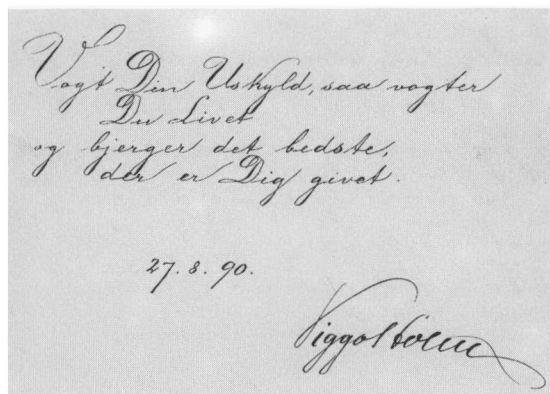 Vogt Din Uskyld, saa vogter
Du Livet
og bjerger det bedste,
der er Dig givet.
27. 8. 90.
Viggo